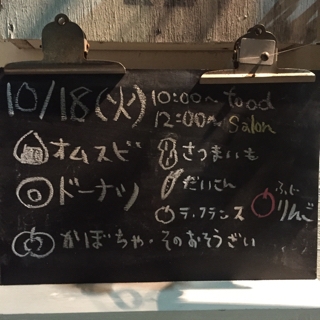 10/18(火)
10:00〜 food
12:00〜 Salon
オムスビ
さつまいも
ドーナツ
だいこん
ラ・フランス
ふじ
りんご
かぼちゃ・そのおそうざい